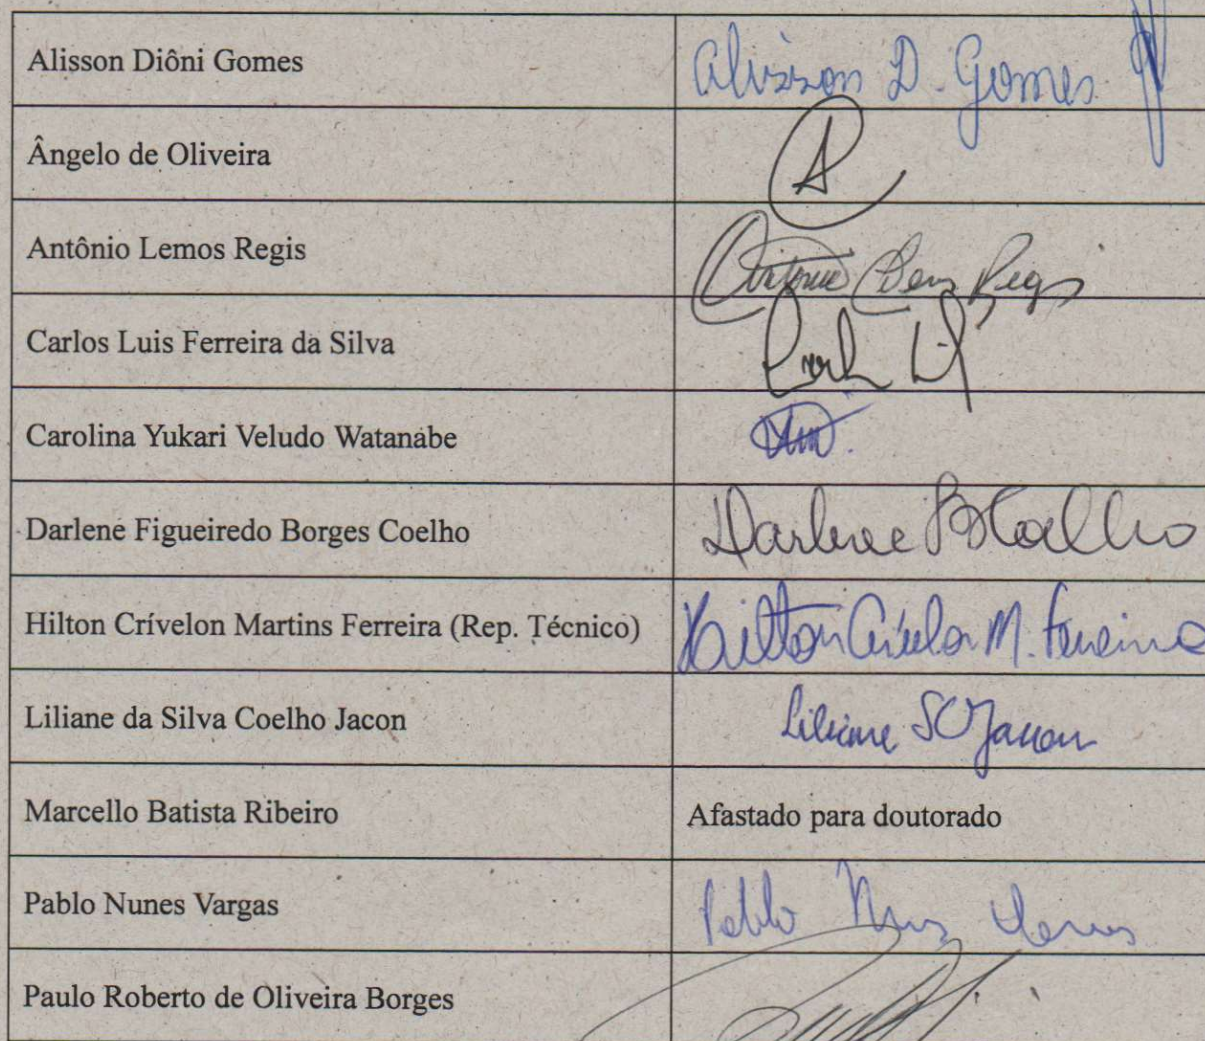 Alisson Diôni Gomes Alisson D. Gomes
Ângelo de Oliveira A
Antônio Lemos Regis Antonio Regis
Carlos Luis Ferreira da Silva
Carolina Yukari Veludo Watanabe
Darlene Figueiredo Borges Coelho Darlene FBCoelho
Hilton Crívelon Martins Ferreira (Rep. Técnico) Hilton Crívelon M. Ferreira
Liliane da Silva Coelho Jacon Liliane SCJacon
Marcello Batista Ribeiro Afastado para doutorado
Pablo Nunes Vargas Pablo Nunes Vargas
Paulo Roberto de Oliveira Borges